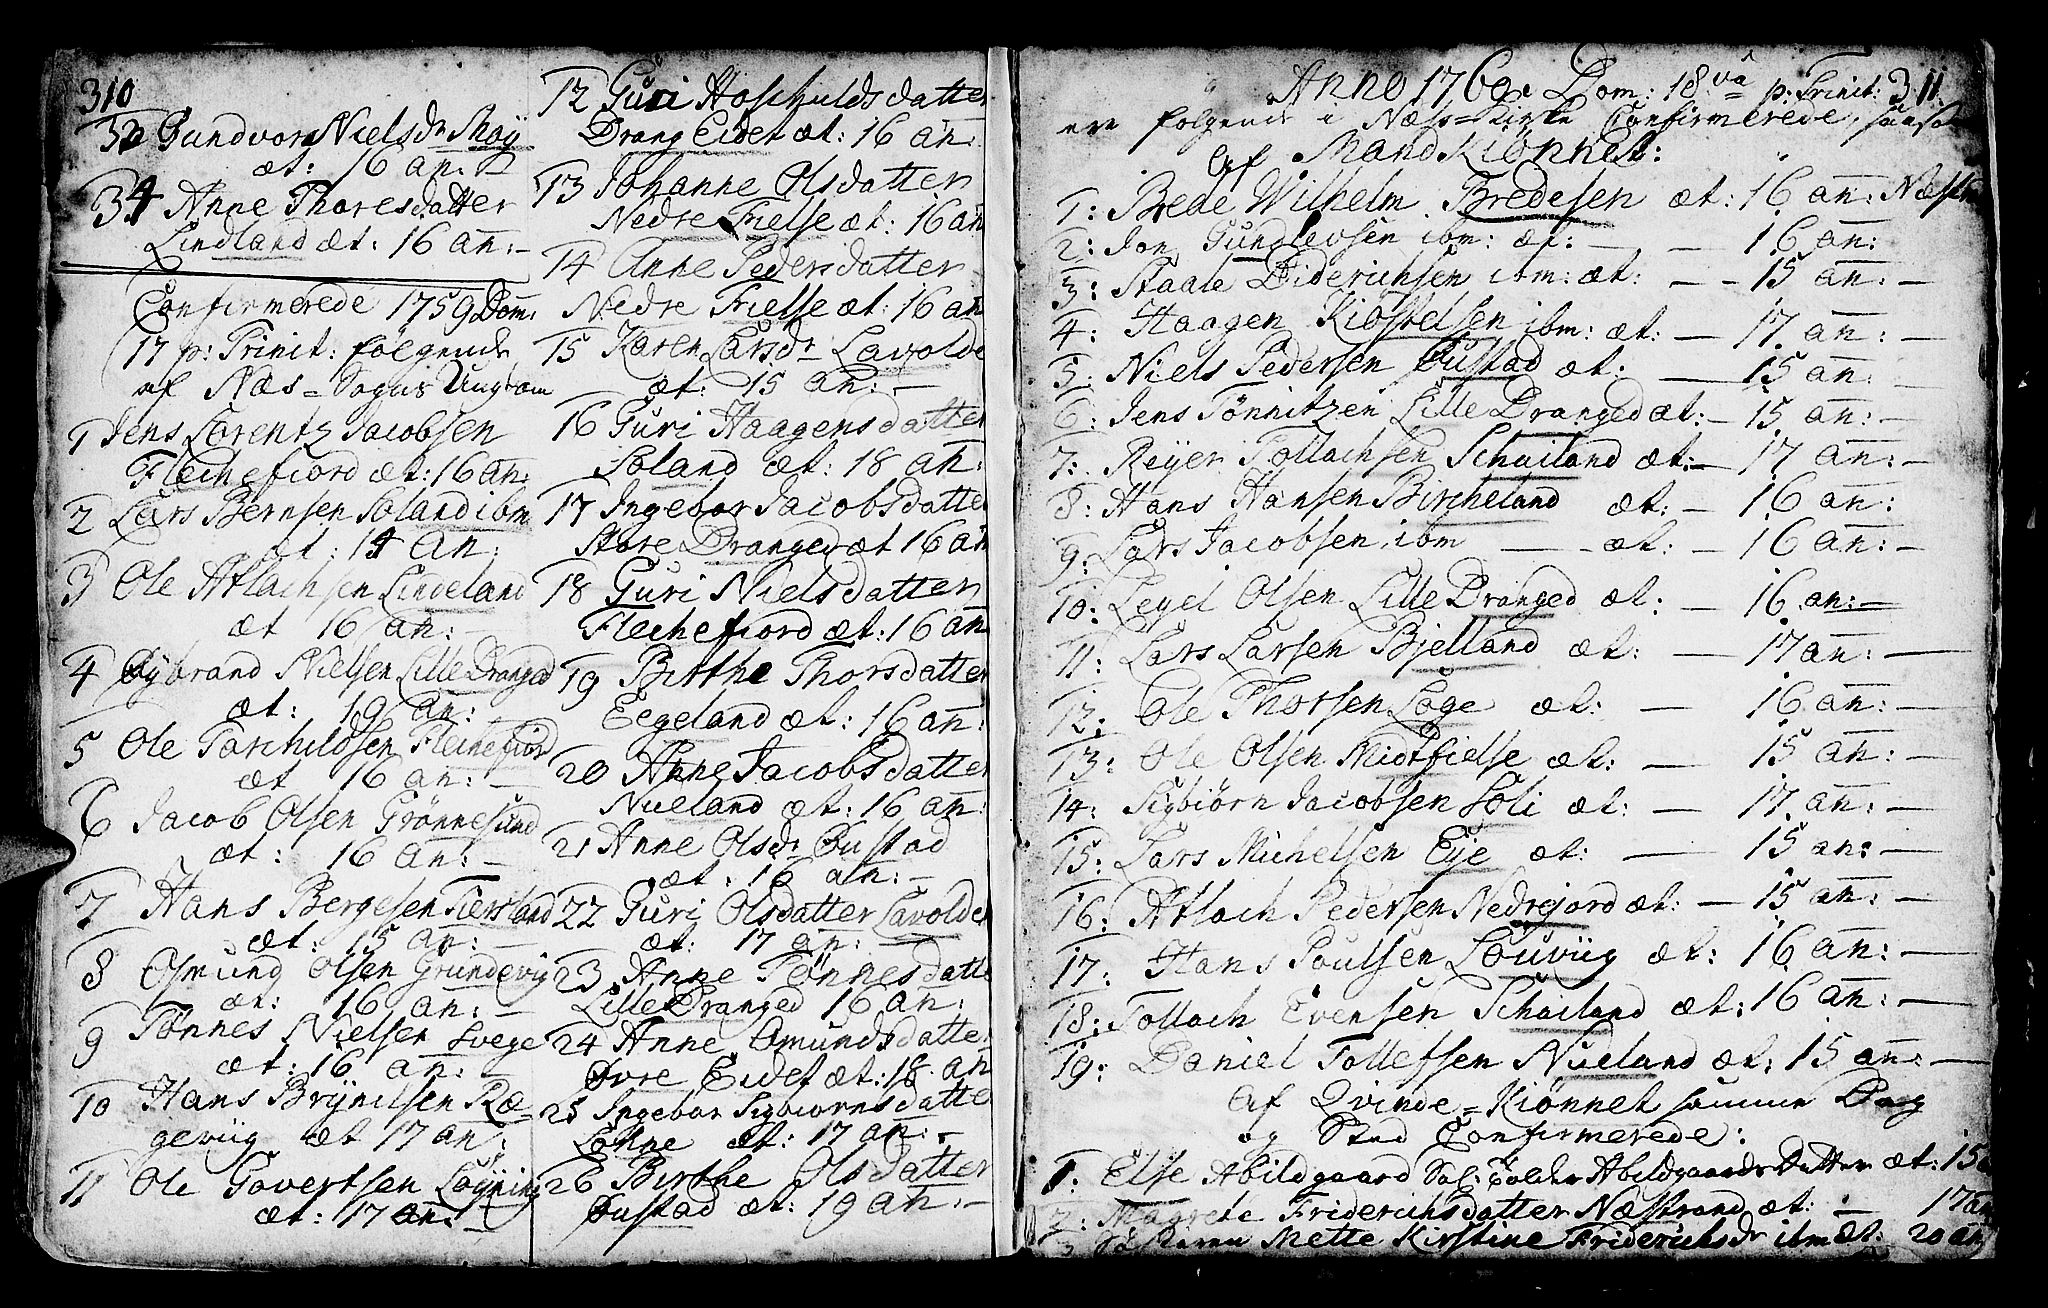 310
33 Gundvor Nielsdr Moÿ
æt: 16 an:
34 Anne Thoresdatter
Lindland æt: 16 añ: -
Confirmerede 1759 Dom:
17 p: Trinit: følgende
af Næs-Sogns Ungdom
1 Jens Lorentz Jacobsen
Flechefiord æt: 16 an:
2 Lars Bernsen Soland ibm
æt: an:
3 Ole Atlachsen Lindeland
æt 16 an: -
4 Sybrand Nielsen Lille Dranged
æt: 19 an:
5 Ole Tarchildsen Flechefiord
æt 16 an: -
6 Jacob Olsen Grønnesund
æt: 16 an: -
7 Hans Bergesen Fiersland
æt: 15 an: -
8 Osmund Olsen Grundevig
æt: 16 an: -
9 Tønnes Nielsen Svege
æt: 16 an: -
10 Hans Brÿnilsen Ræ-
geviig æt 17 an:
11 Ole Govertsen Løyning
æt: 17 an: -
12 Guri Hoschuldsdatter
Drang Eidet æt: 16 añ:
13 Johanne Olsdatter
Nedre Fielse æt: 16 an
14 Anne Pedersdatter
Nedre Fielse æt: 16 an
15 Karen Larsdr Lavolde
æt: 15 an: -
16 Guri Haagensdatter
Soland æt: 18 an:
17 Ingebor Jacobsdatter
Store Dranged æt 16 an
18 Guri Nielsdatter
Flechefiord æt: 16 an
19 Birthe Thorsdatter
Eegeland æt: 16 an:
20 Anne Jacobsdatter
Nueland æt: 16 an:
21 Anne Olsdr Øustad
æt: 16 an: -
22 Guri Olsdatter Lavolde
æt: 17 an: -
23 Anne Tønnesdatte
Lille Dranged 16 an:
24 Anne Omundsdatter
Øvre Eidet æt: 18 an
25 Ingebor Sigbiornsdatte
Løhne æt: 17 an: -
26 Birthe Olsdatter
Øustad æt: 19 an: -
Anno 1760. Dom: 18va p: Trinit: 311.
ere følgende i Næss-Kirke Confirmerede, saasom
Af Mand Kiønnet:
1: Brede Wilhelm Bredesen æt: 16 an: Næstr
2: Jon Gundlevsen ibm: æt: - - 16 an:
3: Staale Diderichsen ibm: æt: - - 15 an: -
4: Haagen Kiøstelsen ibm: æt: - 17 an: -
5: Niels Pedersen Øustad æt: - 15 an: -
6: Jens Tønnitzen Lille Dranged æt: - 15 an: -
7: Reÿer Tollachsen Schailand æt: - 17 an: -
8: Hans Hansen Bircheland æt: - 16 an:
9: Lars Jacobsen ibm - - æt: - 16 an: -
10: Legel Olsen Lille Dranged æt: - 16 an: -
11: Lars Larsen Bjelland æt: - 17 an: -
12: Ole Thorsen Loge æt: - 16 an: -
13: Ole Olsen Midtfielse æt: - 15 an: -
14: Sigbiørn Jacobsen Loli æt: - 17 an: -
15: Lars Michelsen Eÿe æt: - 15 an: -
16: Atlach Pedersen Nedrejord æt: - 15 an: -
17: Hans Poulsen Louviig æt: 16 an: -
18: Tollach Evensen Schailand æt: 16 an: -
19: Daniel Tollefsen Nueland æt: 15 an: -
Af Qvinde-Kiønnet samme Dag
og Sted Confirmerede:
1. Else Abildgaard Sal: Abildgaards Datter æt: 15
2: Magrete Friderichsdatter Næstrand æt: - 17 an
3 Søsteren Mette Kirstine Friderichsdr ibm æt: 20 an